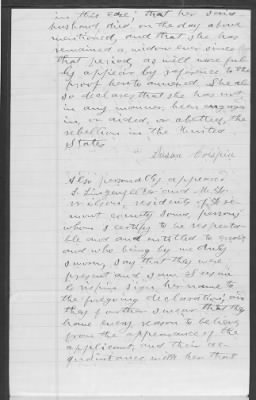 in this case; that her said
husband died, on the day above
mentioned, and that she has
remained a widow ever since
that period, as will more ful-
ly appear by reference to the
proof hereto annexed. She al-
so declares that she has not,
in any manner, been engaged
in, or aided, or abetted, the
rebellion in the United
States
Susan Crispin
Also personally appeared
S. Lingenfelter and
Wilson, residents of Fre-
mont county Iowa, persons
whom I certify to be respecta-
ble and entitled to credit
and who being by me duly
sworn, say that they were
present and saw Susan
Crispin sign her name to
the foregoing declaration; and
they further swear that they
have every reason to believe
from the appearance of the
applicant, and their ac-
quaintance with her that